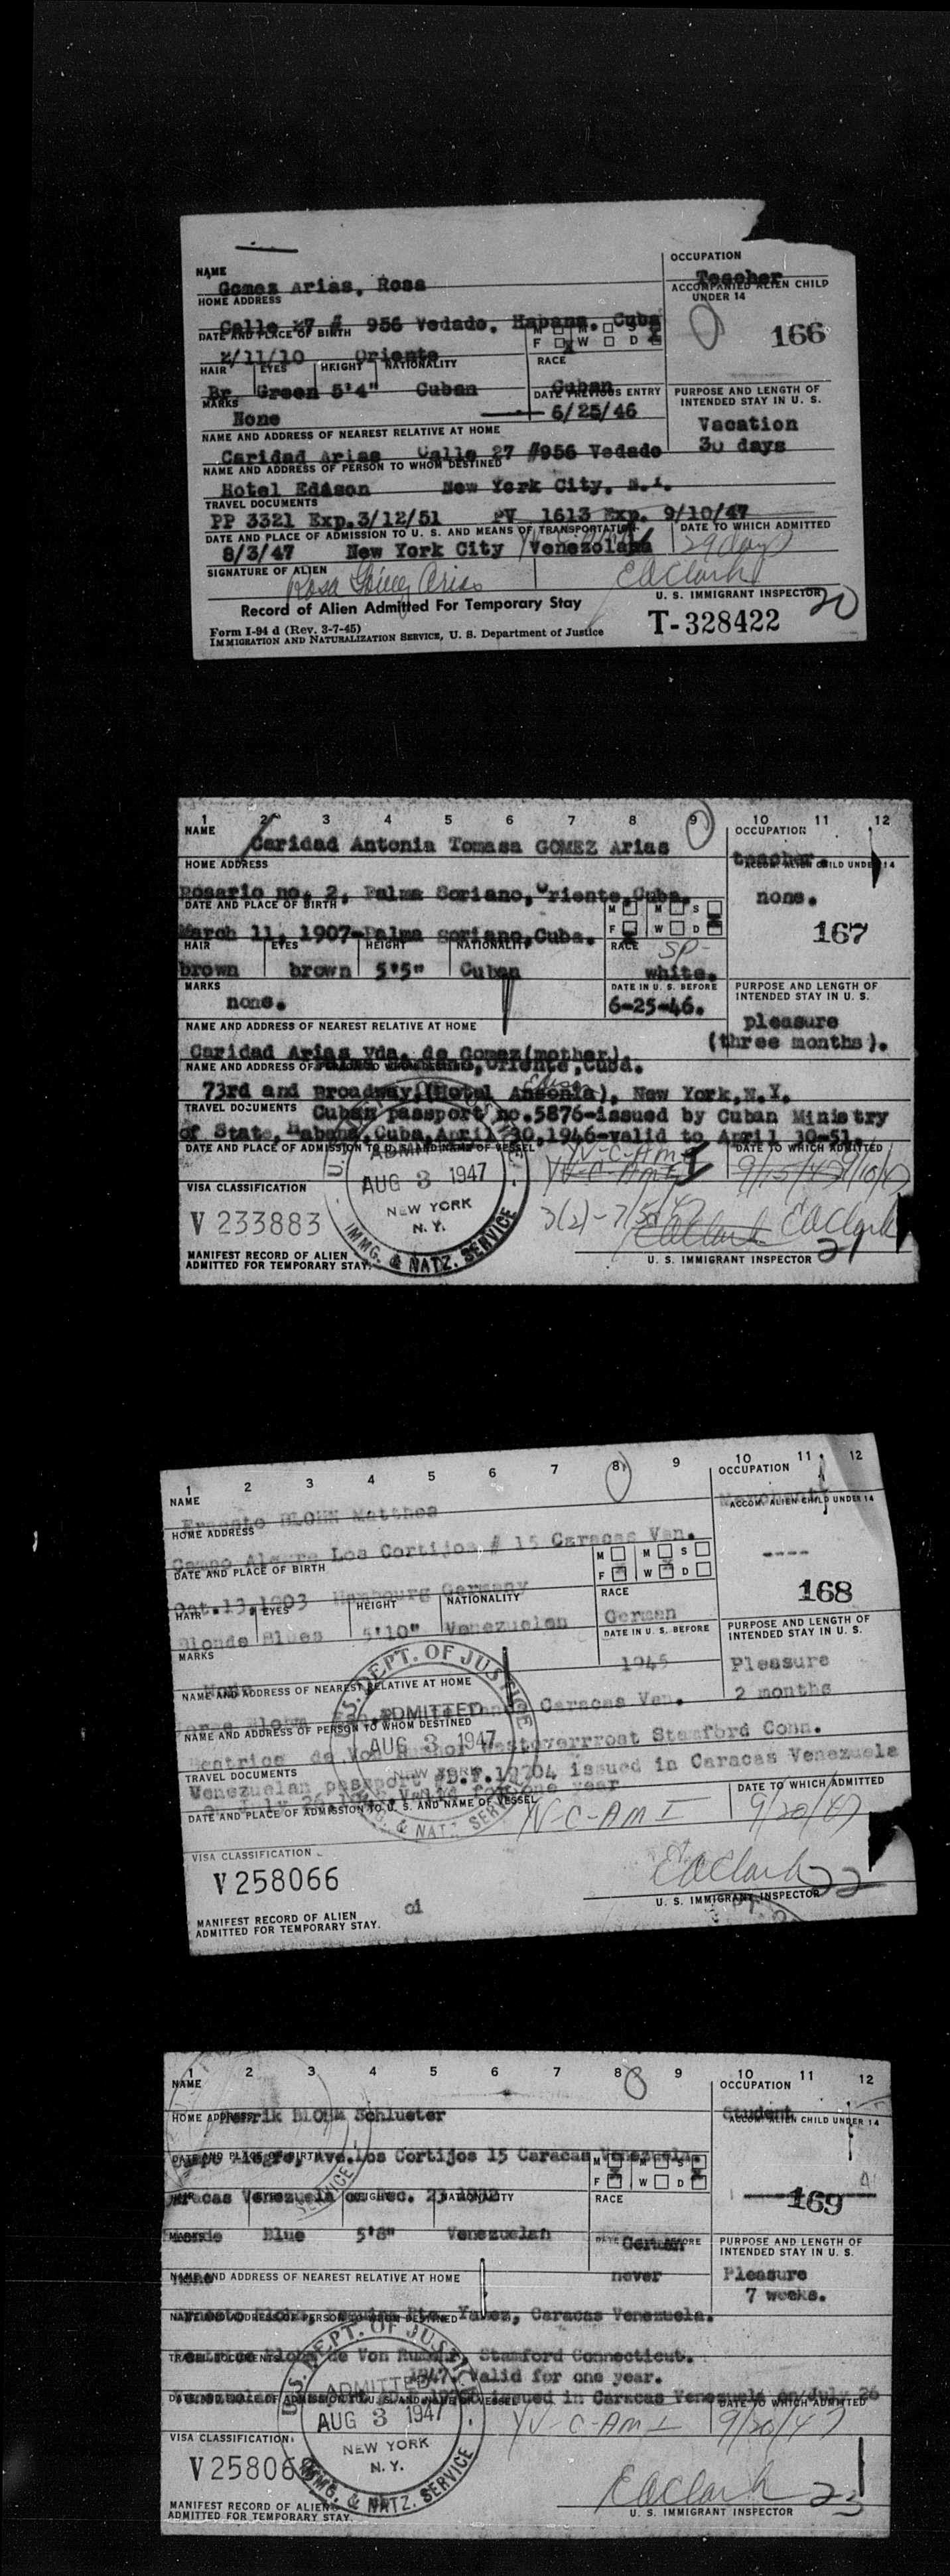 OCCUPATION
NAME Teacher
Gomez Arias, Rosa ACCOMPANIED ALIEN CHILD
HOME ADDRESS UNDER 14
Calle 27 # 956 Vedado, Habana, Cuba
DATE AND PLACE OF BIRTH M M S
F W D 166
2/11/10 Oriente
HAIR EYES HEIGHT NATIONALITY RACE
Br Green 5'4" Cuban Cuban
MARKS DATE PREVIOUS ENTRY PURPOSE AND LENGTH OF
INTENDED STAY IN U. S.
None 6/25/46 Vacation
NAME AND ADDRESS OF NEAREST RELATIVE AT HOME 30 days
Caridad Arias Calle 27 #956 Vedado
NAME AND ADDRESS OF PERSON TO WHOM DESTINED
Hotel Edison New York City, N.Y.
TRAVEL DOCUMENTS
PP 3321 Exp.3/12/51 PV 1613 Exp. 9/10/47
DATE AND PLACE OF ADMISSION TO U. S. AND MEANS OF TRANSPORTATION DATE TO WHICH ADMITTED
8/3/47 New York City Venezolana 29 days
SIGNATURE OF ALIEN Rosa Gómez Arias EAClark
U. S. IMMIGRANT INSPECTOR 20
Record of Alien Admitted For Temporary Stay
Form I-94 d (Rev. 3-7-45) T-328422
IMMIGRATION AND NATURALIZATION SERVICE, U. S. Department of Justice
1 2 3 4 5 6 7 8 9 10 11 12
NAME OCCUPATION
Caridad Antonia Tomasa GOMEZ Arias
HOME ADDRESS teacher. ACCOM. ALIEN CHILD UNDER 14
Rosario no. 2, Palma Soriano, Oriente, Cuba. none.
DATE AND PLACE OF BIRTH M M S
F W D 167
March 11, 1907-Palma soriano, Cuba.
HAIR EYES HEIGHT NATIONALITY RACE SP-
brown brown 5'5" Cuban white.
MARKS DATE IN U. S. BEFORE PURPOSE AND LENGTH OF
INTENDED STAY IN U. S.
none. 6-25-46.
NAME AND ADDRESS OF NEAREST RELATIVE AT HOME pleasure
(three months).
Caridad Arias Vda. de Gomez(mother)
NAME AND ADDRESS OF Oriente, Cuba.
73rd and Broadway, (Hotel Ansonia), New York, N.Y.
TRAVEL DOCUMENTS Cuban passport no.5876-issued by Cuban Ministry
of State, Habana, Cuba, April 10, 1946-valid to April 10-51.
DATE AND PLACE OF ADMISSION TO U. S. AND NAME OF VESSEL DATE TO WHICH ADMITTED
YV-C-AM 9/15/47 9/10/47
ADMITTED
AUG 3 1947
NEW YORK
N. Y.
IMMG. & NATZ. SERVICE
VISA CLASSIFICATION
V 233883 EAClark EAClark
MANIFEST RECORD OF ALIEN
ADMITTED FOR TEMPORARY STAY. U. S. IMMIGRANT INSPECTOR 21
1 2 3 4 5 6 7 8 9 10 11 12
NAME OCCUPATION
Ernesto BLOHM Matthes
HOME ADDRESS ACCOM. ALIEN CHILD UNDER 14
Campo Alegre Los Cortijos # 15 Caracas Ven.
DATE AND PLACE OF BIRTH M M S ----
F W D 168
Oct.13,1903 Hambourg Germany
HAIR EYES HEIGHT NATIONALITY RACE
Blonde Blues 5'10" Venezuelan German
MARKS DATE IN U. S. BEFORE PURPOSE AND LENGTH OF
INTENDED STAY IN U. S.
None 1945 Pleasure
NAME AND ADDRESS OF NEAREST RELATIVE AT HOME 2 months
Blohm Caracas Ven.
NAME AND ADDRESS OF PERSON TO WHOM DESTINED
Beatrice de Von Stamford Conn.
TRAVEL DOCUMENTS
Venezuelan passport D.F.10704 issued in Caracas Venezuela
valid for one year
DATE AND PLACE OF ADMISSION TO U. S. AND NAME OF VESSEL DATE TO WHICH ADMITTED
YV-C-AMI 9/20/47
U. S. DEPT. OF JUSTICE
ADMITTED
AUG 3 1947
NEW YORK
IMMG. & NATZ. SERVICE
VISA CLASSIFICATION
V 258066 EAClark 22
MANIFEST RECORD OF ALIEN
ADMITTED FOR TEMPORARY STAY. ci U. S. IMMIGRANT INSPECTOR
1 2 3 4 5 6 7 8 9 10 11 12
NAME OCCUPATION
HOME ADDRESS BLOHM Schlueter Student
ACCOM. ALIEN CHILD UNDER 14
DATE AND PLACE OF BIRTH Ave.Los Cortijos 15 Caracas Venezuela.
M M S
F W D 169
Caracas Venezuela on Dec.
HEIGHT NATIONALITY RACE
Blue 5'8" Venezuelan German
PURPOSE AND LENGTH OF
INTENDED STAY IN U. S.
NAME AND ADDRESS OF NEAREST RELATIVE AT HOME never Pleasure
7 weeks.
NAME AND ADDRESS OF PERSON TO WHOM DESTINED Yanez, Caracas Venezuela.
TRAVEL DOCUMENTS Blohm de Von Stamford Connecticut.
1947. Valid for one year.
issued in Caracas Venezuela on July 26
DATE AND PLACE OF ADMISSION TO U. S. AND NAME OF VESSEL DATE TO WHICH ADMITTED
YV-C-AMI 9/20/47
U. S. DEPT. OF JUSTICE
ADMITTED
AUG 3 1947
NEW YORK
N. Y.
IMMG. & NATZ. SERVICE
VISA CLASSIFICATION
V 25806
MANIFEST RECORD OF ALIEN EAClark 23
ADMITTED FOR TEMPORARY STAY. U. S. IMMIGRANT INSPECTOR